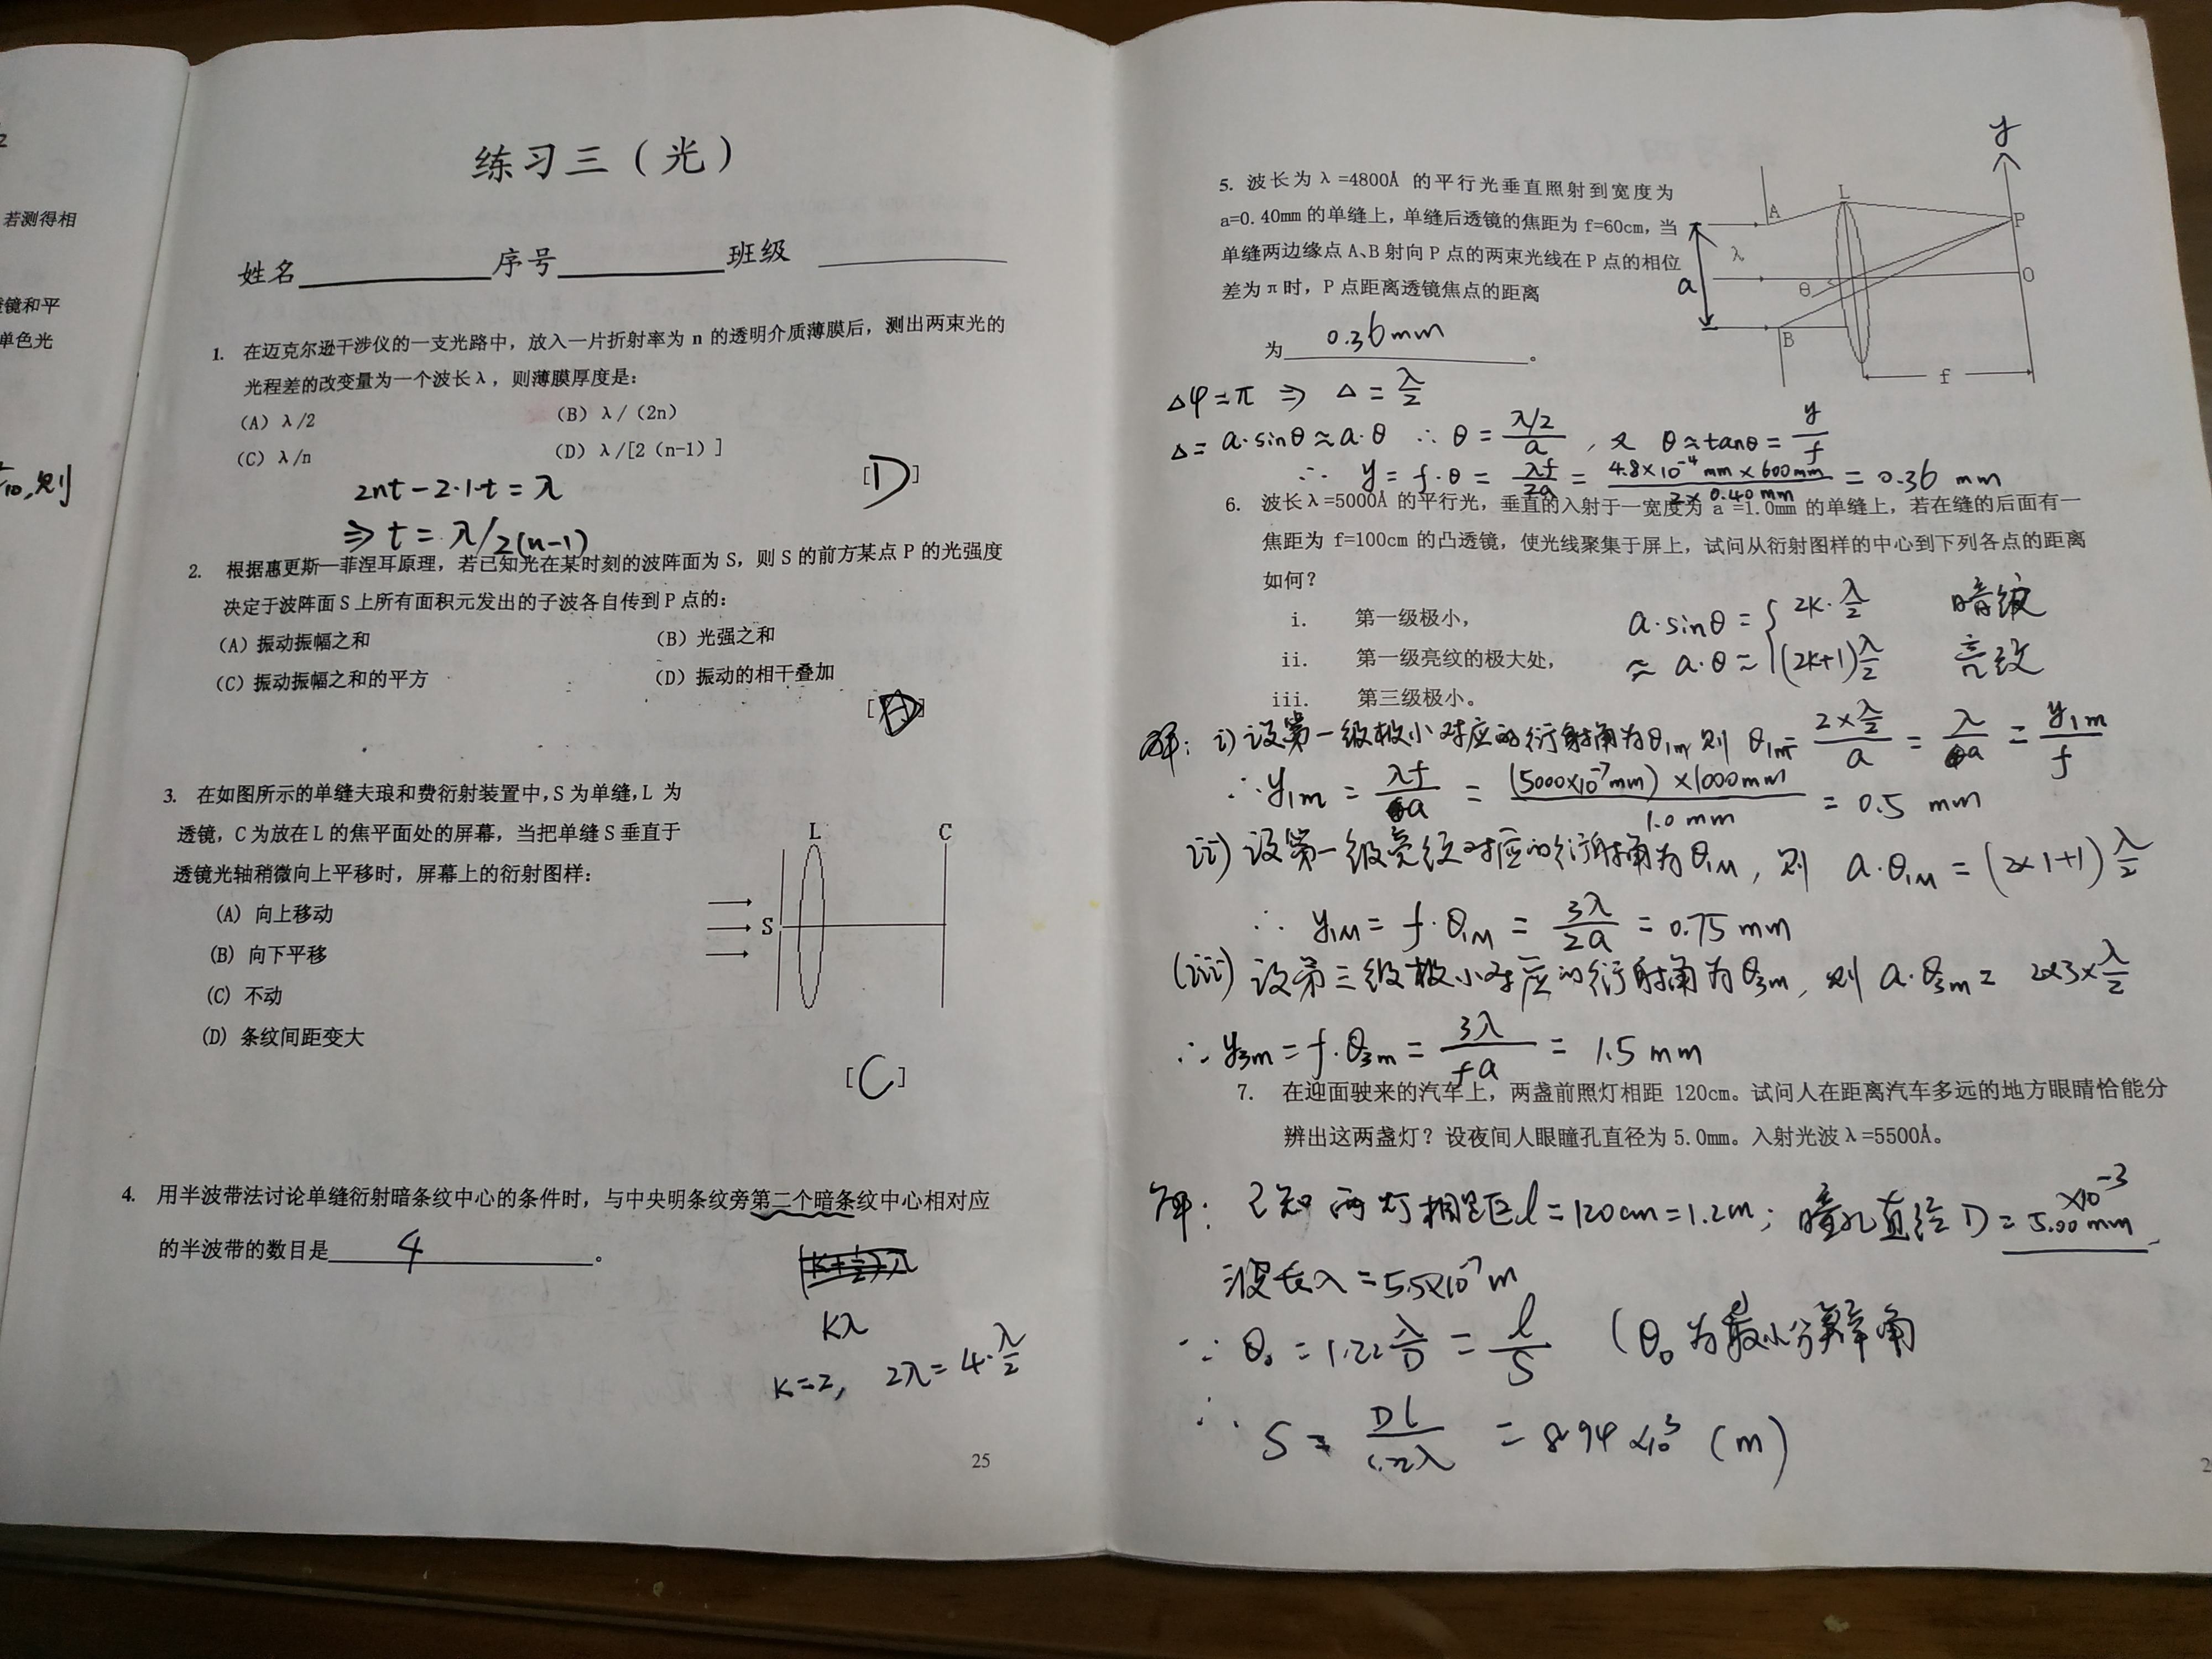 若测得相
镜和平
单色光
练习三（光）
姓名 序号 班级
1. 在迈克尔逊干涉仪的一支光路中，放入一片折射率为 n 的透明介质薄膜后，测出两束光的
光程差的改变量为一个波长λ，则薄膜厚度是：
（A）λ/2 （B）λ/（2n）
（C）λ/n （D）λ/[2（n-1）]
[D]
2nt-2·1·t=λ
⇒ t=λ/2(n-1)
2. 根据惠更斯—菲涅耳原理，若已知光在某时刻的波阵面为 S，则 S 的前方某点 P 的光强度
决定于波阵面 S 上所有面积元发出的子波各自传到 P 点的：
（A）振动振幅之和 （B）光强之和
（C）振动振幅之和的平方 （D）振动的相干叠加
3. 在如图所示的单缝夫琅和费衍射装置中，S 为单缝，L 为
透镜，C 为放在 L 的焦平面处的屏幕，当把单缝 S 垂直于
透镜光轴稍微向上平移时，屏幕上的衍射图样：
（A）向上移动
（B）向下平移
（C）不动
（D）条纹间距变大
L C
S
[C]
4. 用半波带法讨论单缝衍射暗条纹中心的条件时，与中央明条纹旁第二个暗条纹中心相对应
的半波带的数目是 4 。
kλ
k=2, 2λ=4·λ/2
25
5. 波长为λ=4800Å 的平行光垂直照射到宽度为
a=0.40mm 的单缝上，单缝后透镜的焦距为 f=60cm，当
单缝两边缘点 A、B 射向 P 点的两束光线在 P 点的相位
差为π时，P 点距离透镜焦点的距离
为 0.36mm 。
y
A L P
λ
a θ O
B
f
Δφ=π ⇒ Δ=λ/2
Δ=a·sinθ≈a·θ ∴ θ=(λ/2)/a , 又 θ≈tanθ=y/f
∴ y=f·θ=λf/2a=4.8×10⁻⁴mm×600mm/2×0.40mm=0.36 mm
6. 波长λ=5000Å 的平行光，垂直的入射于一宽度为 a=1.0mm 的单缝上，若在缝的后面有一
焦距为 f=100cm 的凸透镜，使光线聚集于屏上，试问从衍射图样的中心到下列各点的距离
如何？
i. 第一级极小，
ii. 第一级亮纹的极大处，
iii. 第三级极小。
a·sinθ={2k·λ/2 暗纹
≈a·θ= (2k+1)λ/2 亮纹
解：i) 设第一级极小对应的衍射角为θ1m，则 θ1m=2×(λ/2)/a=λ/a=y1m/f
∴y1m=λf/a=(5000×10⁻⁷mm)×1000mm/1.0mm=0.5 mm
ii) 设第一级亮纹对应的衍射角为θ1M，则 a·θ1M=(2×1+1)λ/2
∴ y1M=f·θ1M=3λ/2a=0.75 mm
(iii) 设第三级极小对应的衍射角为θ3m，则 a·θ3m=2×3×λ/2
∴ y3m=f·θ3m=3λ/fa=1.5 mm
7. 在迎面驶来的汽车上，两盏前照灯相距 120cm。试问人在距离汽车多远的地方眼睛恰能分
辨出这两盏灯？设夜间人眼瞳孔直径为 5.0mm。入射光波λ=5500Å。
解：已知两灯相距l=120cm=1.2m；瞳孔直径 D=5.00mm ×10⁻³
波长λ=5.5×10⁻⁷m
∵ θ0=1.22λ/D=l/S (θ0为最小分辨角
∴ S=Dl/1.22λ=8.94×10³ (m)